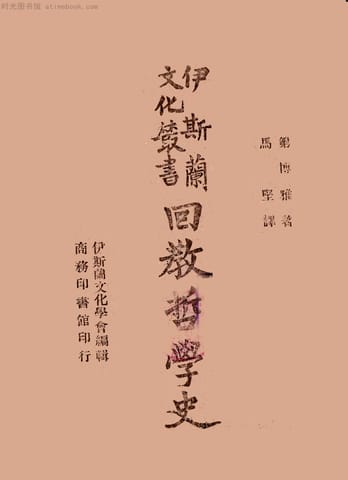 时光图书馆 atimebook.com
第博雅著
馬堅譯
伊斯蘭
文化叢書
回教哲學史
伊斯蘭文化學會編輯
商務印書館印行